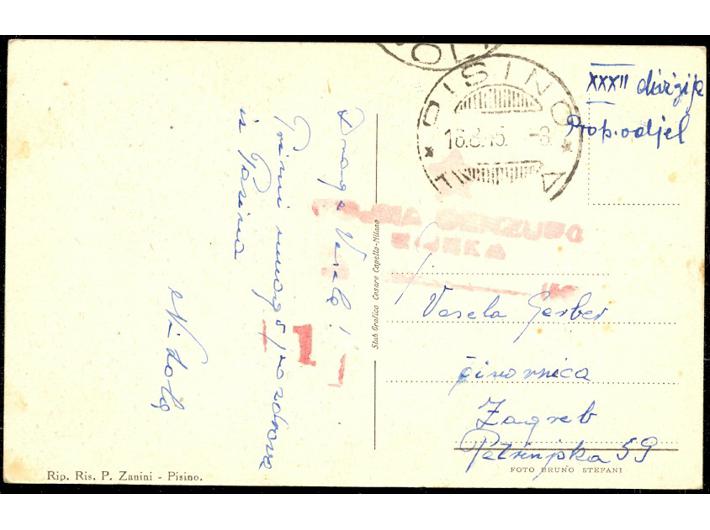 XXXII divizija
Prop. odjel
PISINO
16.8.45. - 8
Draga Vesela!
Primi mnogo pozdrava
iz Pazina
Nikola
VOJNA CENZURA
RIJEKA
1
Stab Grafico Cesare Capello-Milano
Vesela Gerber
činovnica
Zagreb
Petrinjska 59
Rip. Ris. P. Zanini - Pisino.
FOTO BRUNO STEFANI